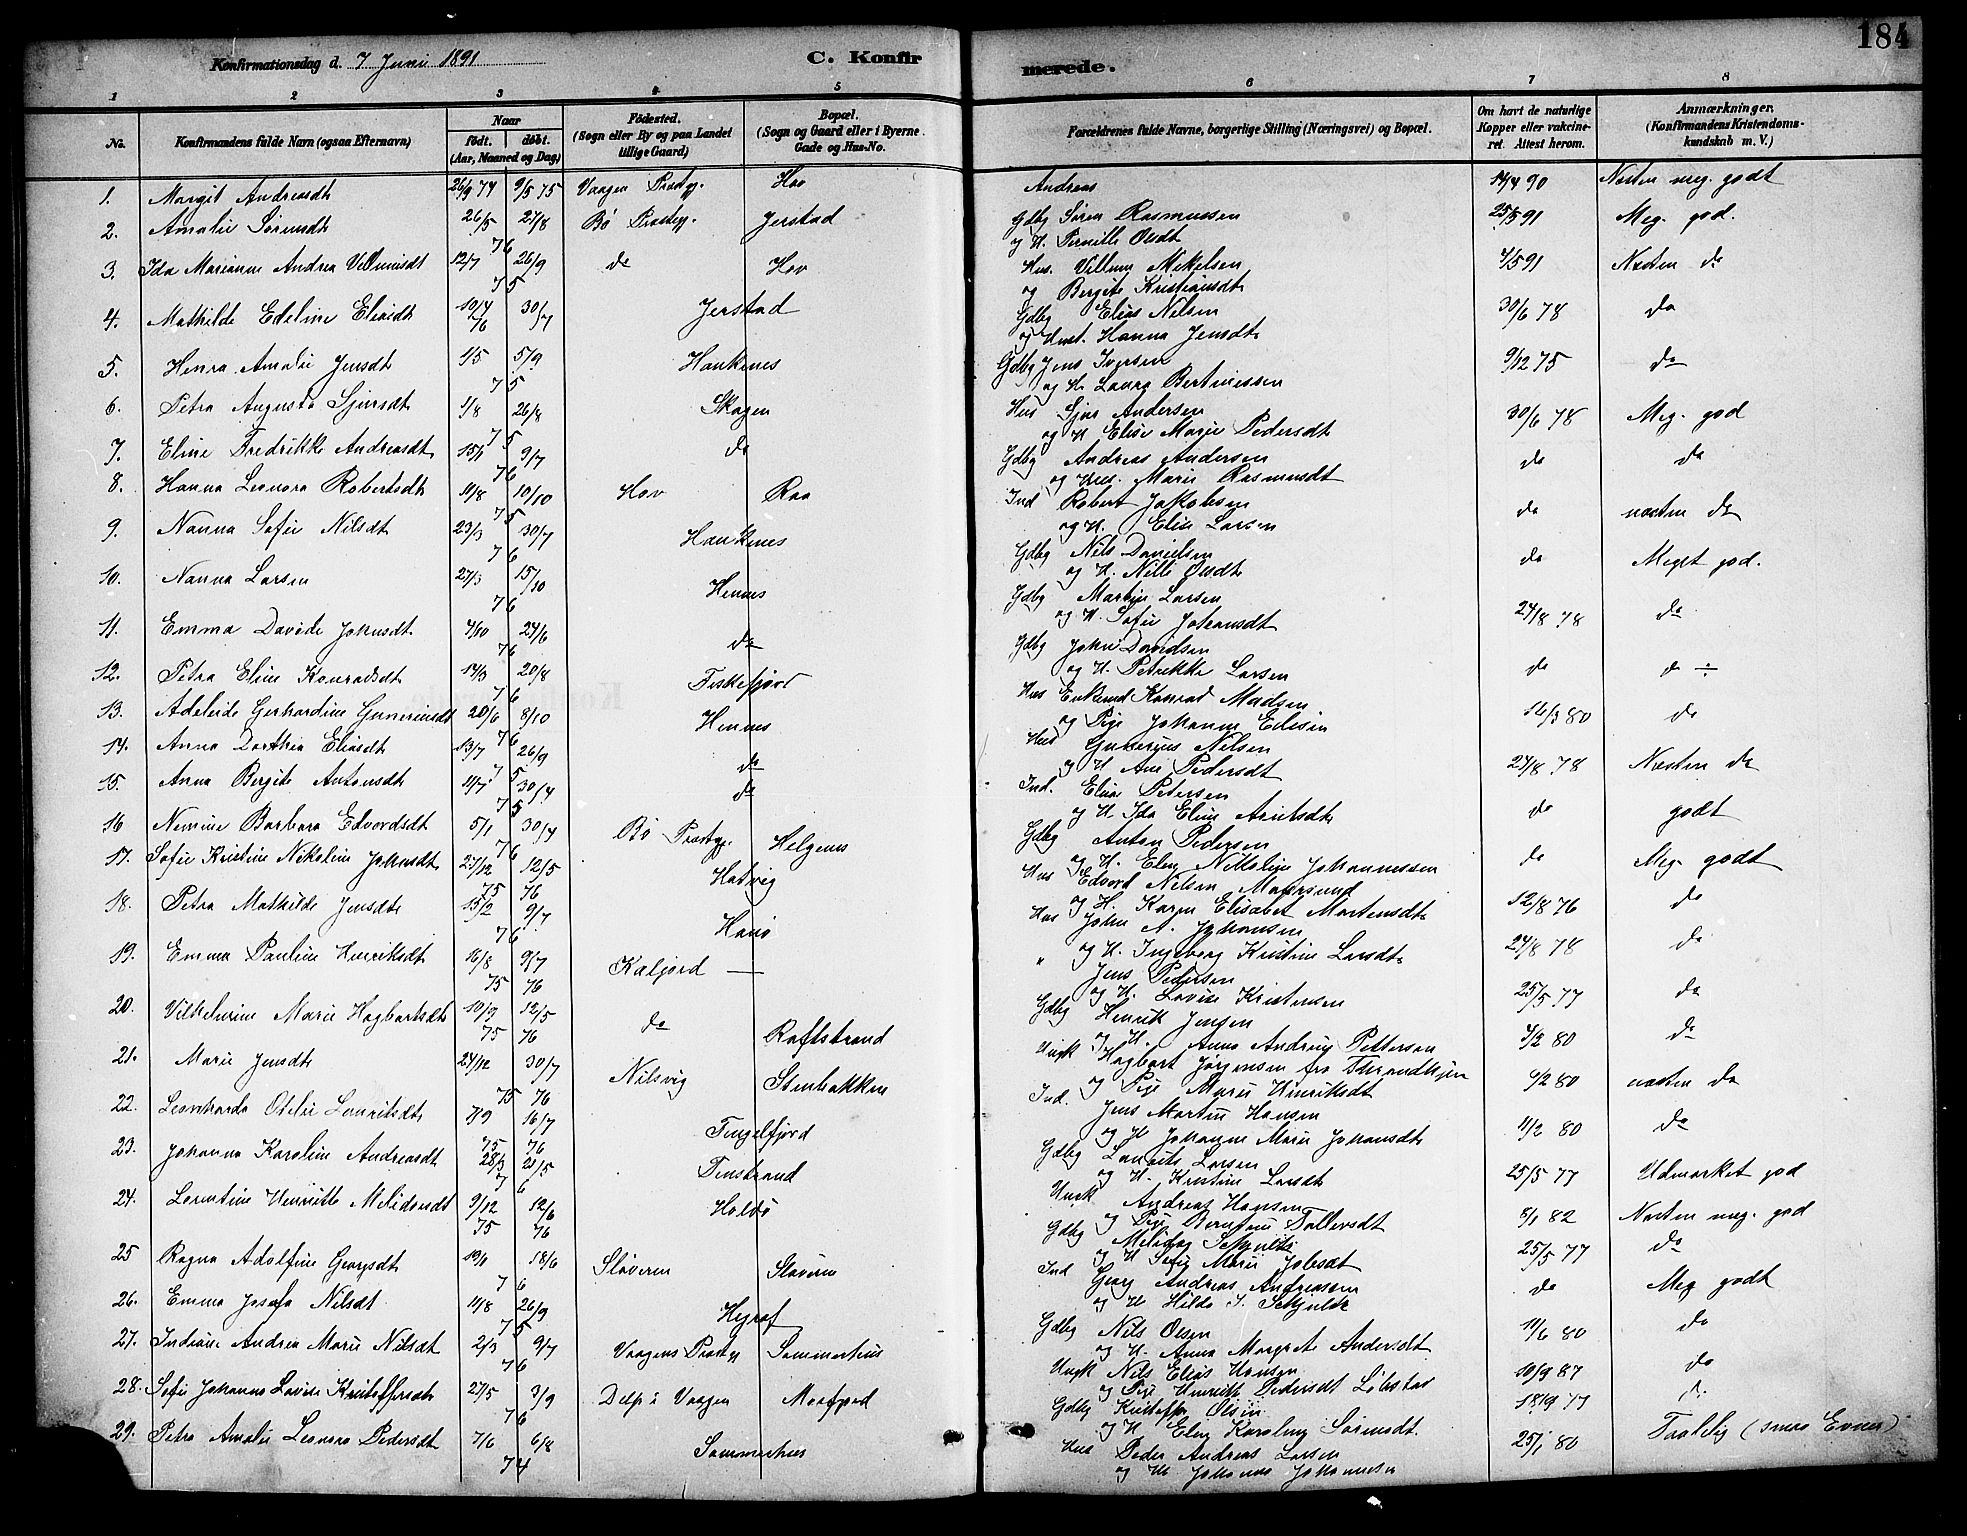 Konfirmationsdag d. 7 Juni 1891 C. Konfirmerede. 184
1 2 3 4 5 6 7 8
No. Konfirmandens fulde Navn (ogsaa Efternavn) Naar født. døbt. (Aar, Maaned og Dag) Fødested. (Sogn eller By og paa Landet tillige Gaard) Bopæl. (Sogn og Gaard eller i Byerne Gade og Hus-No. Forældrenes fulde Navne, borgerlige Stilling (Næringsvei) og Bopæl. Om havt de naturlige Kopper eller vakcineret. Attest herom. Anmærkninger. (Konfirmandens Kristendomskundskab m. V.)
1. Margit Andreasdt 26/9 74 9/5 75 Vaagen Prestgj. Hov Andreas 14/4 90 Næsten meg. godt
2. Amalie Sørensdt 26/5 27/8 76 Bø Prestegj. Jerstad Gdbg Søren Rasmussen og H. Pernille Olsdt 25/5 91 Meg. god.
3. Ida Marianne Andrea Villumsdt 12/7 26/9 75 do Hov Hus. Villum Mikelsen og Bergite Kristiansdt 4/5 91 Næsten do
4. Mathilde Edeline Eliasdt 10/4 76 30/7 Jerstad Gdbg Elias Nilsen og Hust. Hanna Jensdt 30/6 78 do
5. Henra Amalie Jensdt 1/5 5/9 75 Haukenes Gdbg Jens Iversen og H. Laura Bertinessen 9/12 75 do
6. Petra Augusta Sjursdt 1/8 26/8 75 Skagen Hus Sjur Andersen og H Elise Marie Pedersdt 30/6 78 Meg. god
7. Eline Fredrikke Andreasdt 15/1 9/7 76 do Gdbg Andreas Andersen og Hus. Marie Rasmusdt do do
8. Hanna Leonora Robertsdt 11/8 10/10 75 Hov Raa Ind Robert Jakobsen og H. Elise Larsen do næsten do
9. Nanna Sofie Nilsdt 23/3 30/7 76 Haukenes Gdbg Nils Danielsen og H. Nille Olsdt do Meget god.
10. Nanna Larsen 27/3 15/10 76 Hennes Gdbg Martin Larsen og H. Sofie Johansdt 24/8 78 do
11. Emma Davide Johnsdt 4/10 24/6 76 do Gdbg John Davidsen og H. Petrikke Larsen do do ÷
12. Petra Eline Konradsdt 14/3 20/8 76 Fiskefjord Hus Enkemd Konrad Madsen og Pige Johanne Elisen 16/3 80 do
13. Adeleide Gerhardine Guneriusdt 20/6 8/10 76 Hennes Hus Gunerius Nilsen og H Ane Pedersdt 24/8 78 Næsten do
14. Anna Dorthea Eliasdt 13/7 26/9 75 do Ind. Elias Petersen og H. Ida Eline Arntsdt do godt
15. Anna Bergite Antonsdt 11/7 30/4 75 do Gdbg Anton Pedersen og H. Elen Nikoline Johannessen do Meg. godt
16 Nemine Barbara Edvardsdt 5/1 30/4 76 Bø Prestgj. Helgenes Hus Edvard Nilsen og H. Karen Elisabet Mortensdt 12/8 76 do
17. Sofie Kristine Nikoline Johnsdt 27/12 75 12/5 76 Hatvig Hus John A. Johansen og H. Ingeborg Kristine Larsdt 24/8 78 do
18. Petra Mathilde Jensdt 15/2 9/7 76 Hanø " Jens Pedersen og H. Lovise Kristensen 25/5 77 do
19. Emma Pauline Henriksdt 16/8 75 9/7 76 Kaljord — Gdbg Henrik Jensen og H. Anna Andrine Pettersen 4/2 80 do
20. Vilhelmine Marie Hagbartsdt 10/9 75 12/5 76 do Raftstrand Ungk Hagbart Jørgensen fra Throndhjem og Pige Marie Henriksdt 6/2 80 næsten do
21. Marie Jensdt 24/12 75 30/7 76 Nilsvig Stenbakken Ind. Jens Martin Hansen og H Johanne Marie Johansdt 11/2 80 do
22. Leonharda Otelie Lauritsdt 7/9 75 16/7 76 Tengelfjord Gdbg Laurits Larsen og H. Kristine Larsdt 25/5 77 Udmærket god
23. Johanna Karoline Andreasdt 28/3 21/5 76 Finstrand Ungk Andreas Hansen og Pige Berntine Tollevsdt 5/1 82 Næsten meg. god
24. Lorentine Henriette Melidonsdt 9/12 75 12/6 76 Holdø Gdbg Melidon Schjults og H Sofie Marie Jobsdt 25/5 77 do
25 Ragna Adolfine Georgsdt 19/1 18/6 76 Sløveren Sløveren Ind Georg Andreas Andreasen og H Hilda S. Schjultz do Meg godt
26. Emma Josefa Nilsdt 11/8 26/9 75 Gdbg Nils Olsen og H. Anna Margrete Andersdt 11/6 80 do
27. Indiane Andrea Marie Nilsdt 2/3 9/7 76 Vaagens Prestgj Sommerhus Ungk Nils Elias Hansen og Pige Henriette Pedersdt 10/9 87 do
28. Sofie Johanna Lovise Kristoffersdt 27/5 3/9 76 Delp i Vaagen Morfjord Gdbg Kristoffer Olsen og H Elen Karoline Sørensdt. 18/9 77 d.
29. Petra Amalie Leonora Pedersdt 7/6 6/8 74 Sommerhus Hus Peder Andreas Larsen og H Johanna Johannesen 25/1 80 Taalelig (smaa Evner)